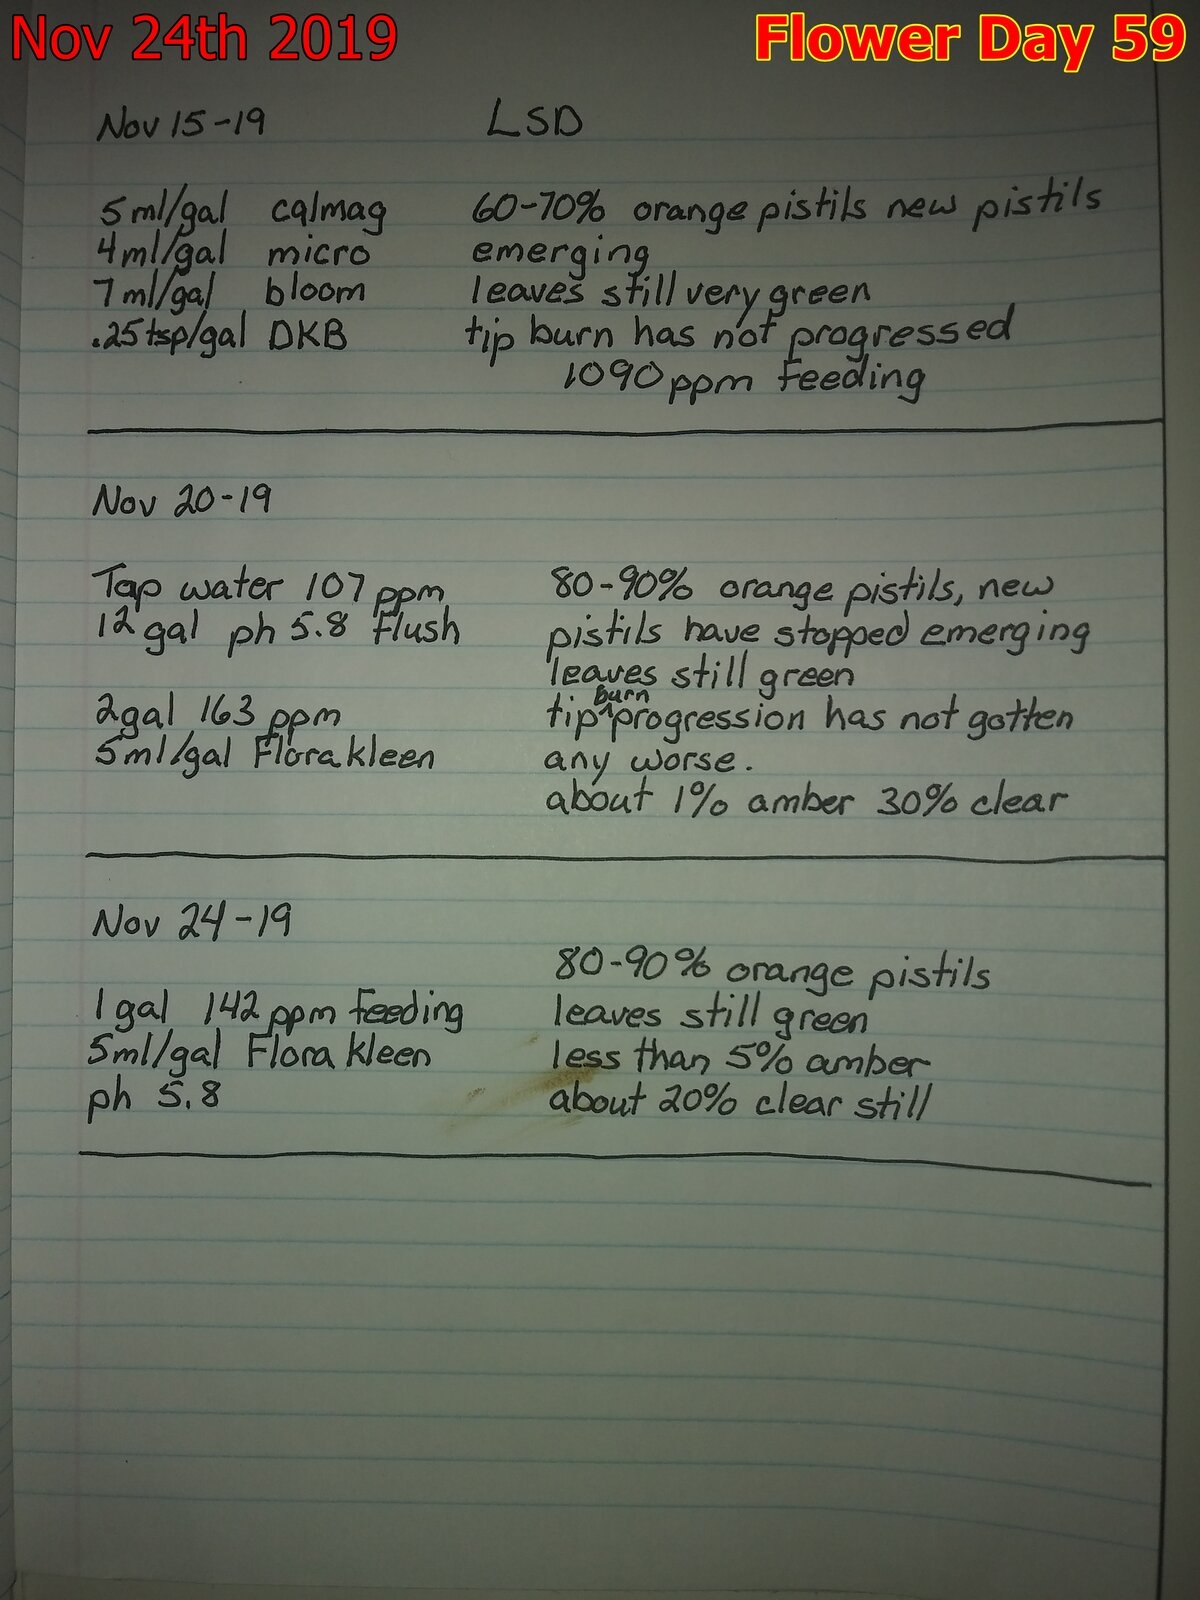 Nov 24th 2019
Flower Day 59
Nov 15-19
LSD
5ml/gal calmag
4ml/gal micro
7ml/gal bloom
.25tsp/gal DKB
60-70% orange pistils new pistils
emerging
leaves still very green
tip burn has not progressed
1090 ppm feeding
Nov 20-19
Tap water 107 ppm
12 gal ph 5.8 flush
2gal 163 ppm
5ml/gal Florakleen
80-90% orange pistils, new
pistils have stopped emerging
leaves still green
tip burn progression has not gotten
any worse.
about 1% amber 30% clear
Nov 24-19
1 gal 142 ppm feeding
5ml/gal Flora kleen
ph 5.8
80-90% orange pistils
leaves still green
less than 5% amber
about 20% clear still